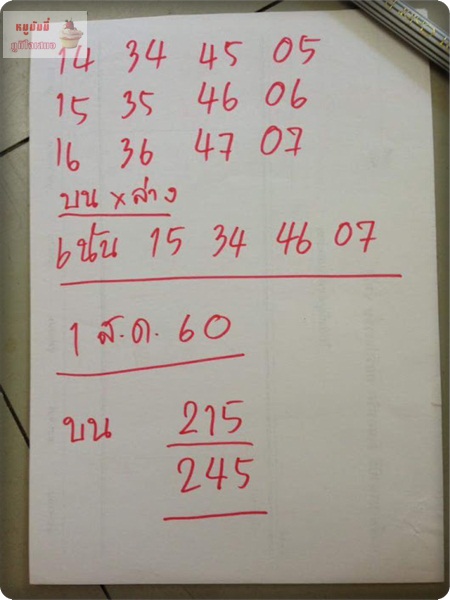 14 34 45 05
15 35 46 06
16 36 47 07
บน x ล่าง
เน้น 15 34 46 07
1 ส.ค. 60
บน 215
245